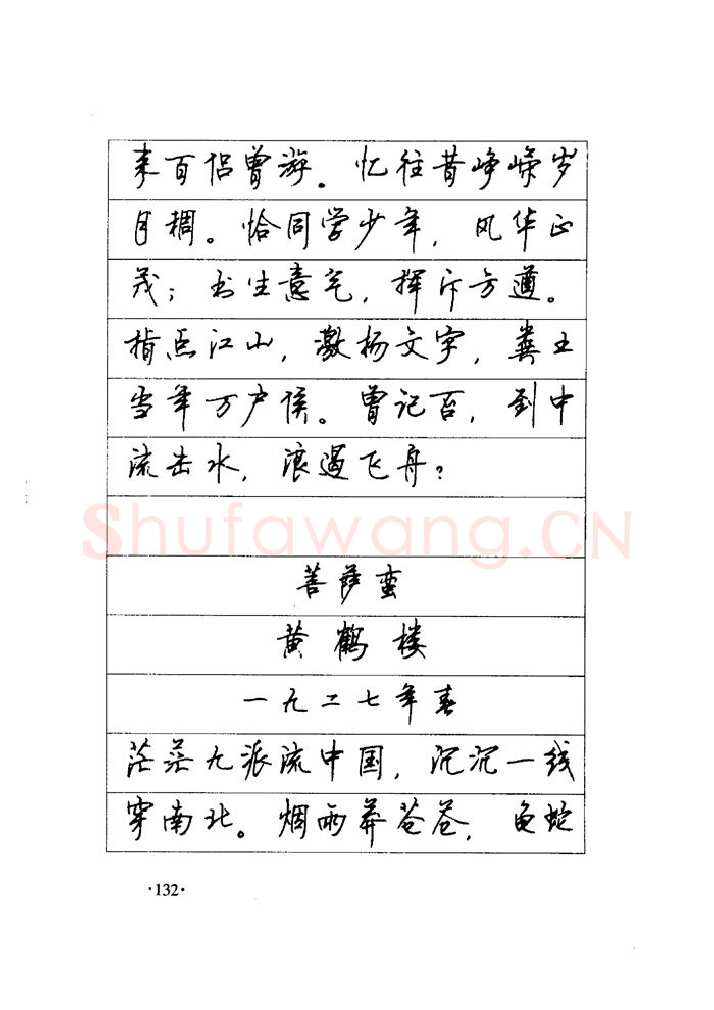 来百侣曾游。忆往昔峥嵘岁
月稠。恰同学少年，风华正
茂；书生意气，挥斥方遒。
指点江山，激扬文字，粪土
当年万户侯。曾记否，到中
流击水，浪遏飞舟？
Shufawang.CN
菩萨蛮
黄鹤楼
一九二七年春
茫茫九派流中国，沉沉一线
穿南北。烟雨莽苍苍，龟蛇
·132·